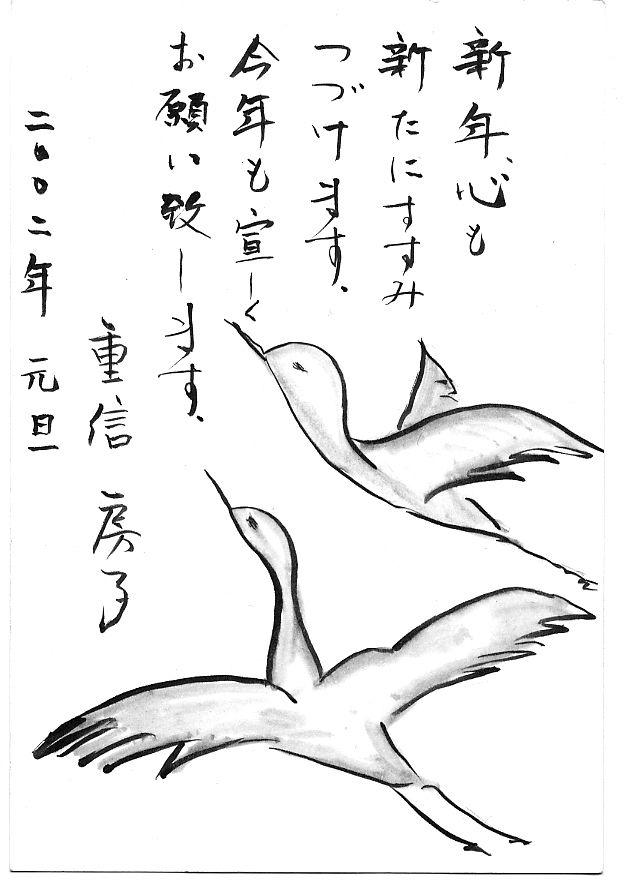 新年、心も
新たにすすみ
つづけます。
今年も宜しく
お願い致します。
重信 房子
二〇〇二年 元旦